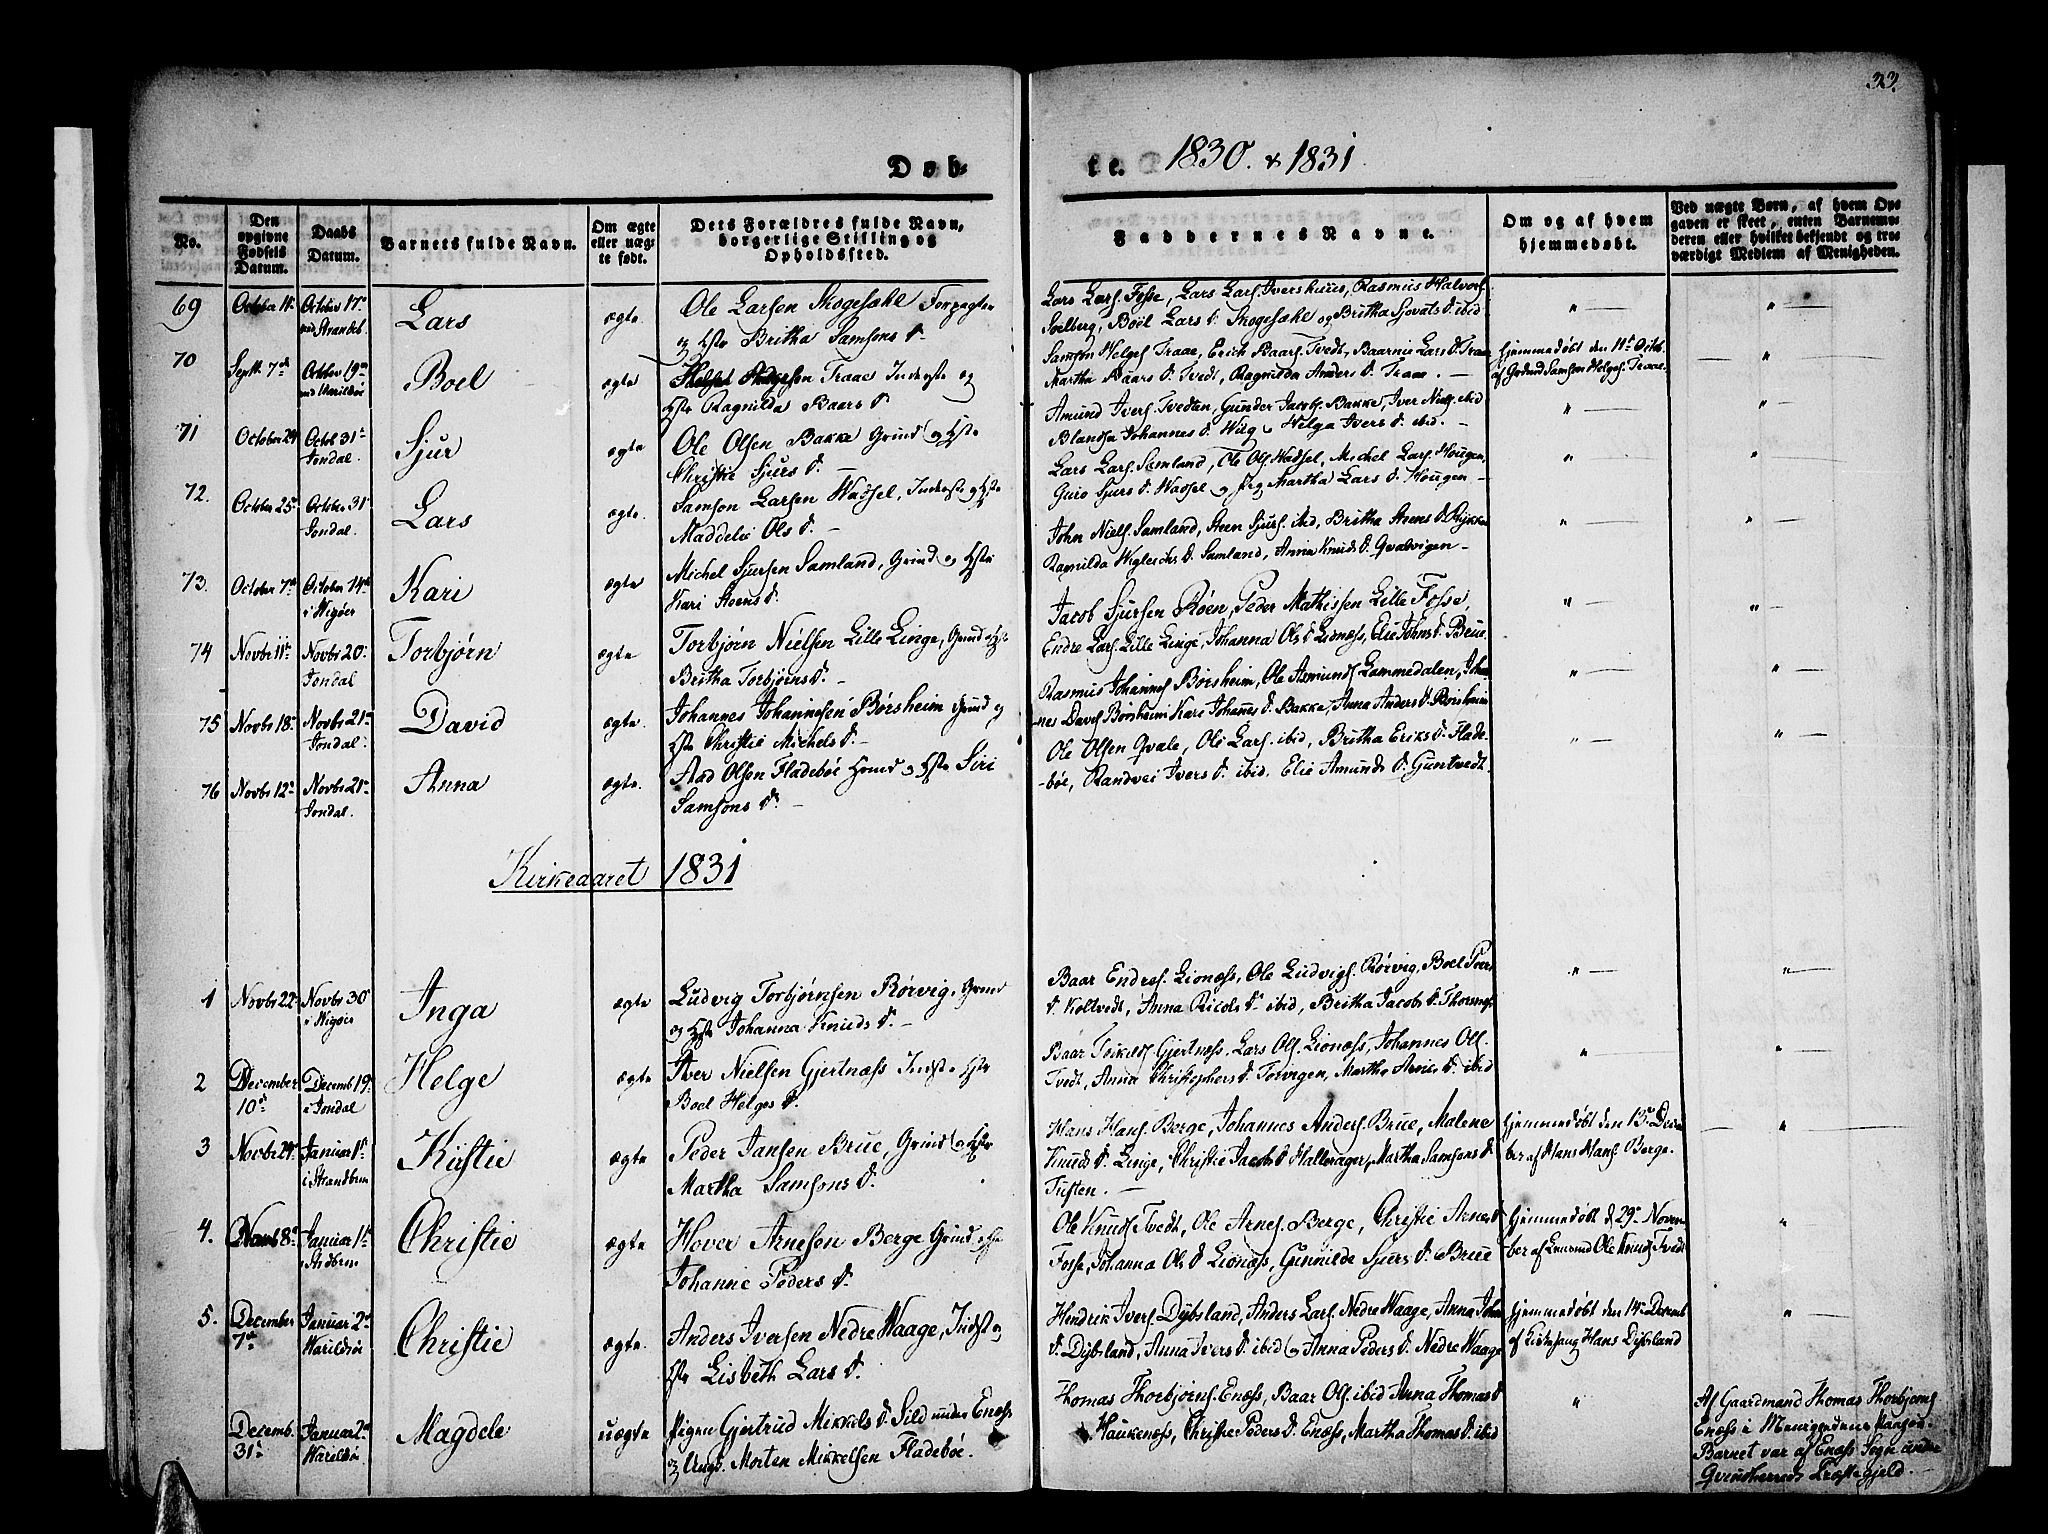 33.
Døb-
te. 1830. & 1831
No.
Den opgivne Fødsels Datum.
Daabs Datum.
Barnets fulde Navn.
Om ægte eller uægte født.
Dets Forældres fulde Navn, borgerlige Stilling og Opholdssted.
Faddernes Navne.
Om og af hvem hjemmedøbt.
Ved uægte Børn, af hvem Opgaven er skeet, enten Barnemoderen eller hvilket bekjendt og troværdigt Medlem af Menigheden.
69 October 11 October 17 Lars ægte Ole Larsen Skogesæhl Forpagter
og Hste Britha Samsons D.
Lars Lars. Fosse, Lars Lars. Ivershuus, Rasmus Halvors.
Solberg, Boël Lars D. Skogesæhl og Britha Sjovats D. ibid
70 Septb 7de October 19 Boel ægte Traae Inderste og
Hste Ragnilda Baars D.
Samson Helges. Traae, Erich Baars. Tvedt, Baarnie Lars D. Traae
Martha Baars D. Tvedt, Ragnilda Anders D. Traae.
hjemmedøbt den 11te Octob.
af Samson Helges. Traae.
71 October 24 Octob 31 Jondal. Sjur ægte Ole Olsen Bakke Gmd og Hste
Christie Sjurs D.
Amund Ivers. Tvedten, Gunder Jacobs. Bakke, Iver Niels. ibid
Johannes D. Wiig, Helga Ivers D. ibid.
72. October 25 October 31 Jondal. Lars ægte. Samson Larsen Wadsel, Inderste og Hste
Maddelie Ols D.
Lars Lars. Samland, Ole Ols. Wadsel, Michel Lars. Hougen,
Guro Sjurs D. Wadsel og Martha Lars D. Hougen
73. October 7de October 14de i Wigøer Kari ægte Michel Sjursen Samland, Gmd og Hste
Kari Steens D.
John Niels. Samland, Steen Sjurs. ibid, Britha Steens D. Rykken
Ramilda Wiglechs D. Samland, Anna Knuds D. Qvalvigen
74 Novbr 11te Novbr 20 Jondal Torbjørn ægte Torbjørn Nielsen Lille Linge, Gmd og Hste
Britha Torbjørns D.
Jacob Sjursen Røen, Peder Mathissen Lille Fosse,
Endre Lars. Lille Linge, Johanna Ols D. Lionæss, Elie Johns D. Brue.
75 Novbr 18 Novbr 21 Jondal. David ægte. Johannes Johannesen Børsheim Gmd og
Hste Christie Michels D.
Rasmus Johannes. Børsheim, Ole Asmunds. Lammedalen, Johan-
nes Davids. Børsheim Kari Johannes D. Bakke, Anna Anders D. Børsheim
76 Novbr 12 Novbr 21 Jondal. Anna ægte. Aad Olsen Fladebøe Gmd og Hste Siri
Samsons D.
Ole Olsen Qvale, Ole Lars. ibid, Britha Eriks D. Flade-
-bøe, Randvei Ivers D. ibid. Elie Amunds D. Guntvedt.
Kirkeaaret 1831
1 Novbr 22 Novbr 30 i Wigøer Inga ægte Ludvig Torbjørnsen Rørvig, Gmd
og Hste Johanna Knuds D.
Baar Endres. Lionæss, Ole Ludvigs. Rørvig, Boel Peers
D. Koltvedt, Anna Ricols D. ibid, Britha Jacobs D.
2 December 10de Decemb 19 i Jondal Helge ægte Iver Nielsen Gjertnæss Indste Hste
Boel Helges D.
Baar Gjertnæss, Lars Ols. Lionæss, Johannes Ols.
Tvedt, Anna Christophers D. Torvigen, Martha Arnes D. ibid
3 Novbr 24 Januar 1 i Strandbrm Kristie ægte Peder Jansen Brue, Gmd og Hste
Martha Samsons D.
Hans Hans. Berge, Johannes Anders. Brue, Malene
Knuds D. Linge, Christie Jacobs D. Hallerager, Martha Samsons D.
Tusten.
hjemmedøbt den 13 Decem
ber af Hans Hans. Berge.
4. 8 Januar 1 Christie ægte Hover Arnesen Berge Gmd og Hste
Johanne Peders D.
Ole Knuds. Tvedt, Ole Arnes. Berge, Christie Arnes D
Fosse, Johanna Ols D Lionæss, Gunnilde Sjurs D. Brue
hjemmedøbt d 29 Novem
ber af Ole Knuds. Tvedt
5. December 7de Januar 2 Warildsøe Christie ægte. Anders Iversen Nedre Waage, Indst og
Hste Lisbeth Lars D.
Hendrik Ivers. Dybsland, Anders Lars. Nedre Waage, Anna Johan
D. Dybsland, Anna Ivers D. ibid og Anna Peders D. Nedre Waage
hjemmedøbt den 14 Decemb
af Kirkesang Hans Dybsland
Decemb. 31 Januar 2 Warildsøe Magdele uægte Pigen Gjertrud Mikkels D. Sild under Enæss
og Ungk. Morten Mikkelsen Fladebøe.
Thomas Thorbjørns. Enæss, Baar Ols. ibid Anna Thomas D
Haukenæss, Christie Peders D. Enæss, Martha Thomas D. ibid
Af Gaardmand Thomas Thorbjørns.
Enæss i Menighedens
Barnet var af Enæss Sogn under
Qvindherreds Præstegjeld.